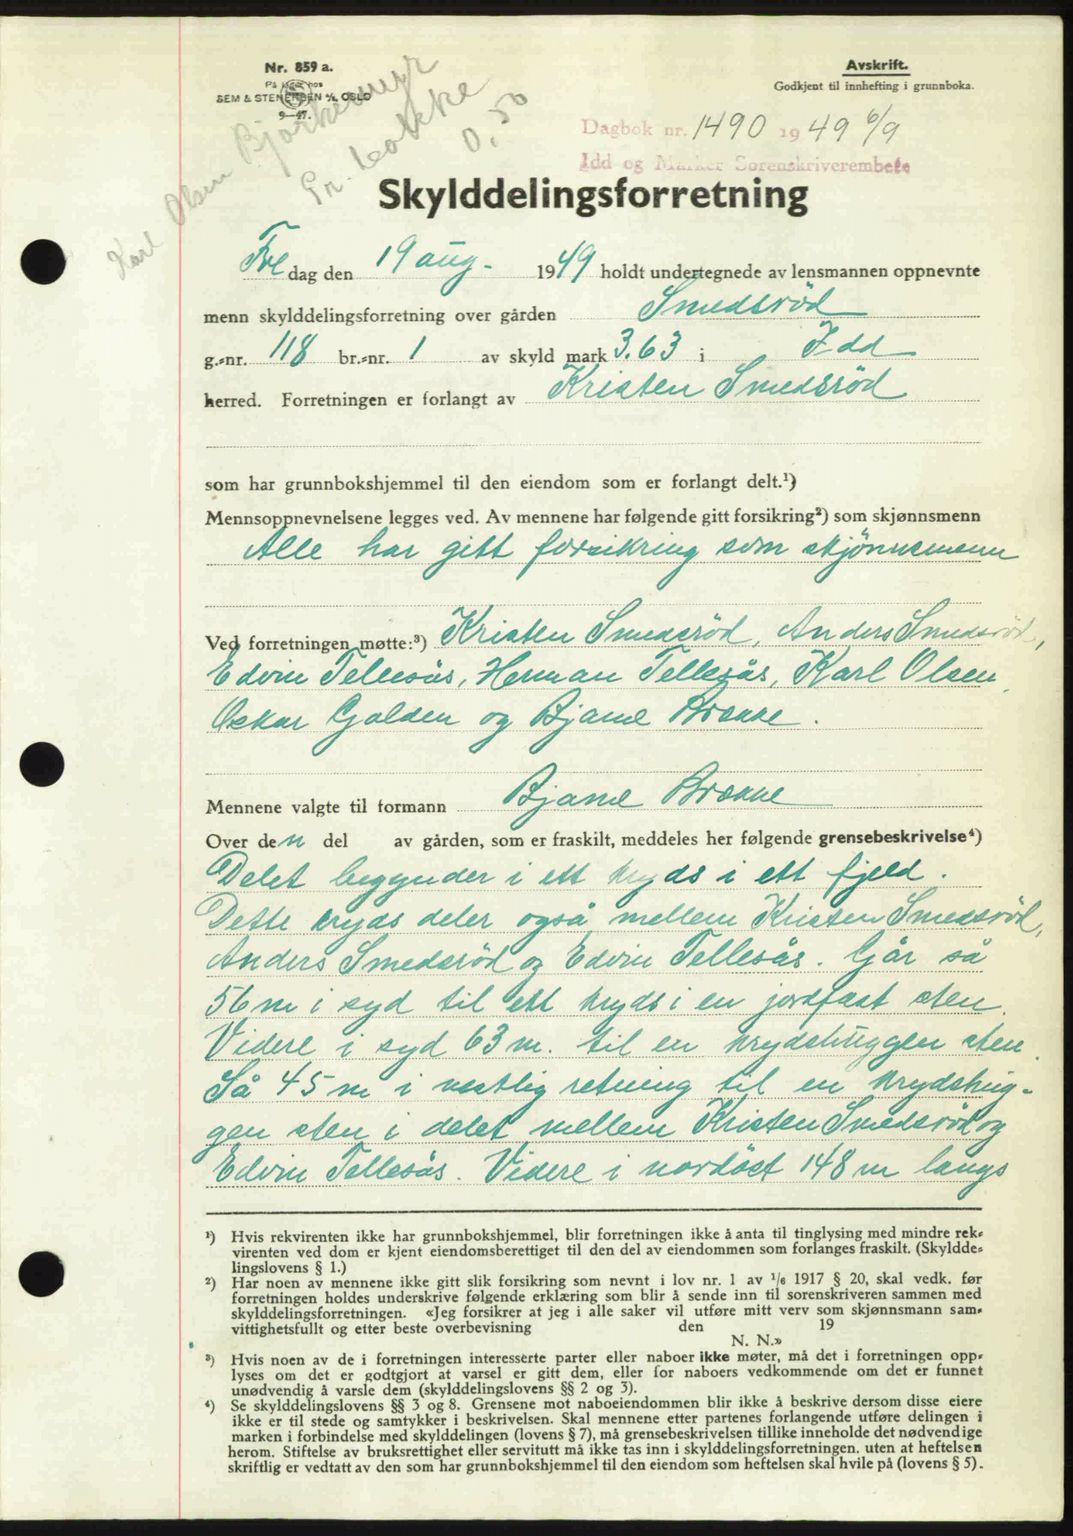 Nr. 859 a.
På lager hos
SEM & STENERSEN A/S, OSLO
9—47.
Karl Olsen Bjørkemyr
pr. Lokke
0,50
Avskrift.
Godkjent til innhefting i grunnboka.
Dagbok nr. 1490 1949 6/9
Idd og Marker Sorenskriverembete
Skylddelingsforretning
Fredag den 19 aug. 1949 holdt undertegnede av lensmannen oppnevnte
menn skylddelingsforretning over gården Smedsröd
g.-nr. 118 br.-nr. 1 av skyld mark 3.63 i Idd
herred. Forretningen er forlangt av Kristen Smedsröd
som har grunnbokshjemmel til den eiendom som er forlangt delt.¹)
Mennsoppnevnelsene legges ved. Av mennene har følgende gitt forsikring²) som skjønnsmenn
Alle har gitt forsikring som skjönnsmenn
Ved forretningen møtte:³) Kristen Smedsröd, Anders Smedsröd,
Edvin Tellesås, Herman Tellesås, Karl Olsen,
Oskar Golden og Bjarne Brække.
Mennene valgte til formann Bjarne Brække
Over den del av gården, som er fraskilt, meddeles her følgende grensebeskrivelse⁴)
Delet begynder i ett kryds i ett fjeld.
Dette kryds deler også mellem Kristen Smedsröd,
Anders Smedsröd og Edvin Tellesås. Går så
56 m i syd til ett kryds i en jordfast sten.
Videre i syd 63 m. til en krydshuggen sten.
Så 45 m i vestlig retning til en krydshug-
gen sten i delet mellem Kristen Smedsröd og
Edvin Tellesås. Videre i nordöst 148 m langs
¹) Hvis rekvirenten ikke har grunnbokshjemmel, blir forretningen ikke å anta til tinglysing med mindre rek-
virenten ved dom er kjent eiendomsberettiget til den del av eiendommen som forlanges fraskilt. (Skyldde-
lingslovens § 1.)
²) Har noen av mennene ikke gitt slik forsikring som nevnt i lov nr. 1 av 1/6 1917 § 20, skal vedk. før
forretningen holdes underskrive følgende erklæring som blir å sende inn til sorenskriveren sammen med
skylddelingsforretningen. «Jeg forsikrer at jeg i alle saker vil utføre mitt verv som skjønnsmann sam-
vittighetsfullt og etter beste overbevisning den 19
N. N.»
³) Hvis noen av de i forretningen interesserte parter eller naboer ikke møter, må det i forretningen opp-
lyses om det er godtgjort at varsel er gitt dem, eller for naboers vedkommende om det er funnet
unødvendig å varsle dem (skylddelingslovens §§ 2 og 3).
⁴) Se skylddelingslovens §§ 3 og 8. Grensene mot naboeiendommen blir ikke å beskrive dersom disse eiere
ikke er til stede og samtykker i beskrivelsen. Skal mennene etter partenes forlangende utføre delingen i
marken i forbindelse med skylddelingen (lovens § 7), må grensebeskrivelsen tillike inneholde det nødvendige
herom. Stiftelse av bruksrettighet eller servitutt må ikke tas inn i skylddelingsforretningen, uten at heftelsen
skriftlig er vedtatt av den som har grunnbokshjemmel til den eiendom som heftelsen skal hvile på (lovens § 5).